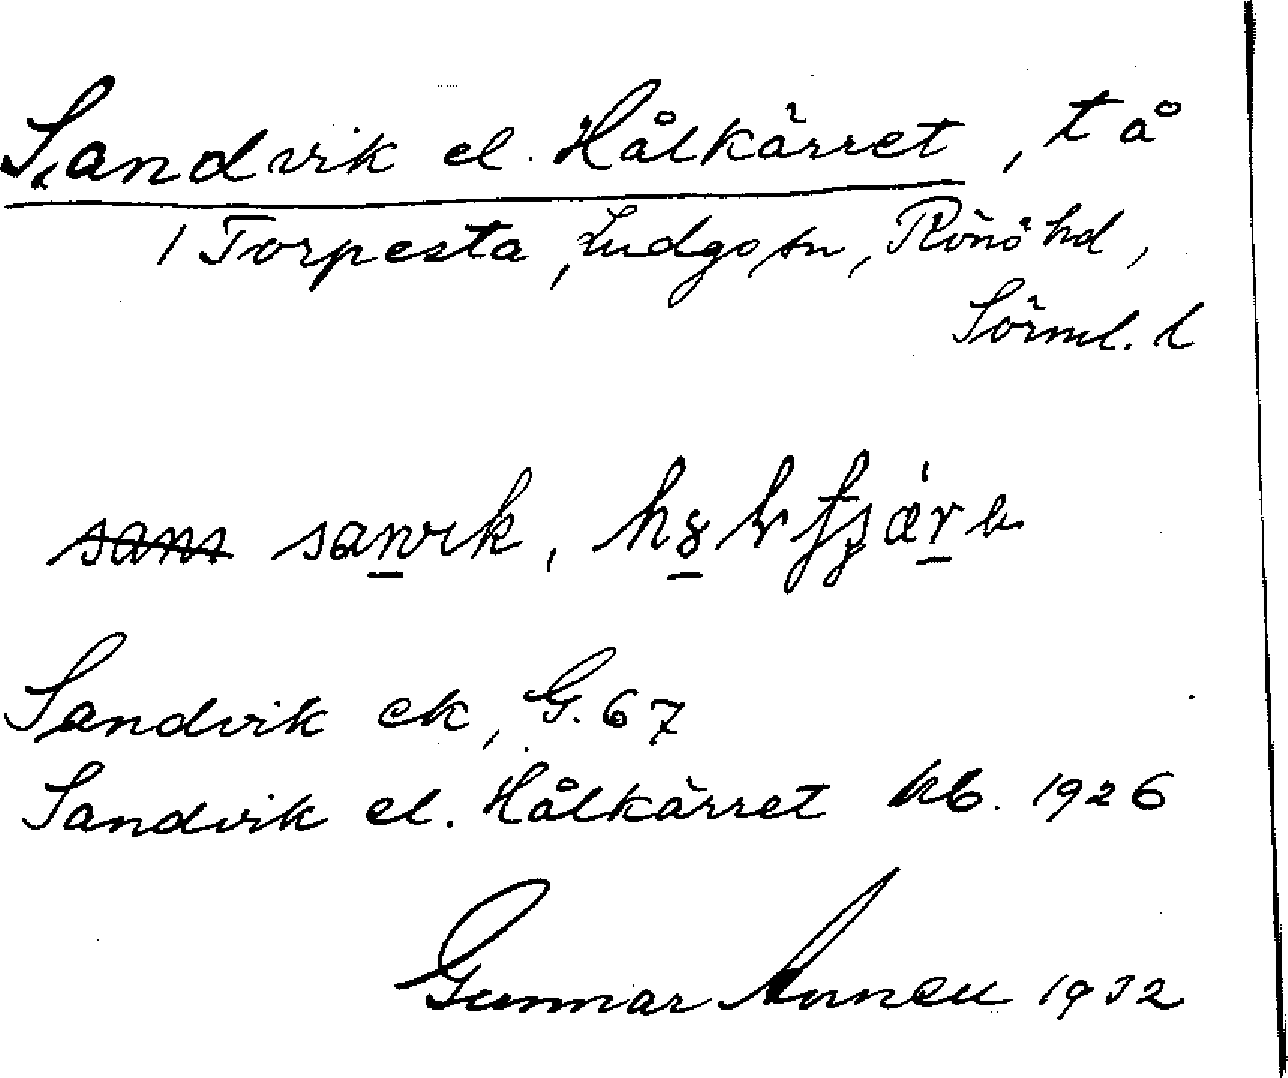 Sandvik el. Hålkärret, t å
/ Torpesta, Ludgo sn, Rönö hd,
Sörml. l
sans sanvik,
Sandvik ek, G. 67
Sandvik el. Hålkärret kb. 1926
Gunnar 1932